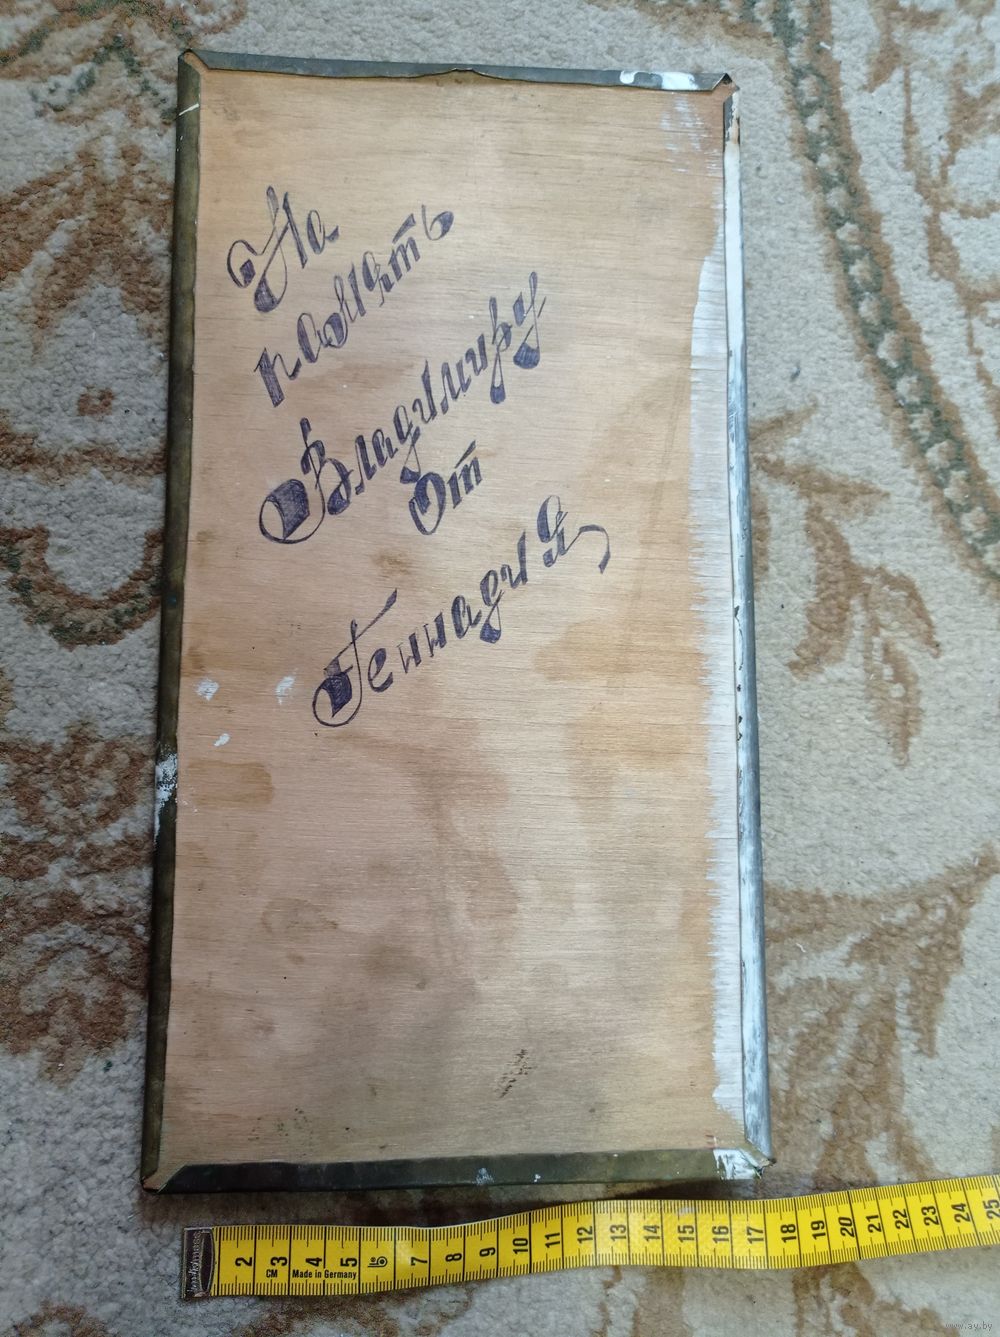 На
память
Владимиру
От
Геннадия
2 3 4 5 6 7 8 9 10 11 12 13 14 15 16 17 18 19 20 21 22 23 24 25
CM Made in Germany
www.ay.by